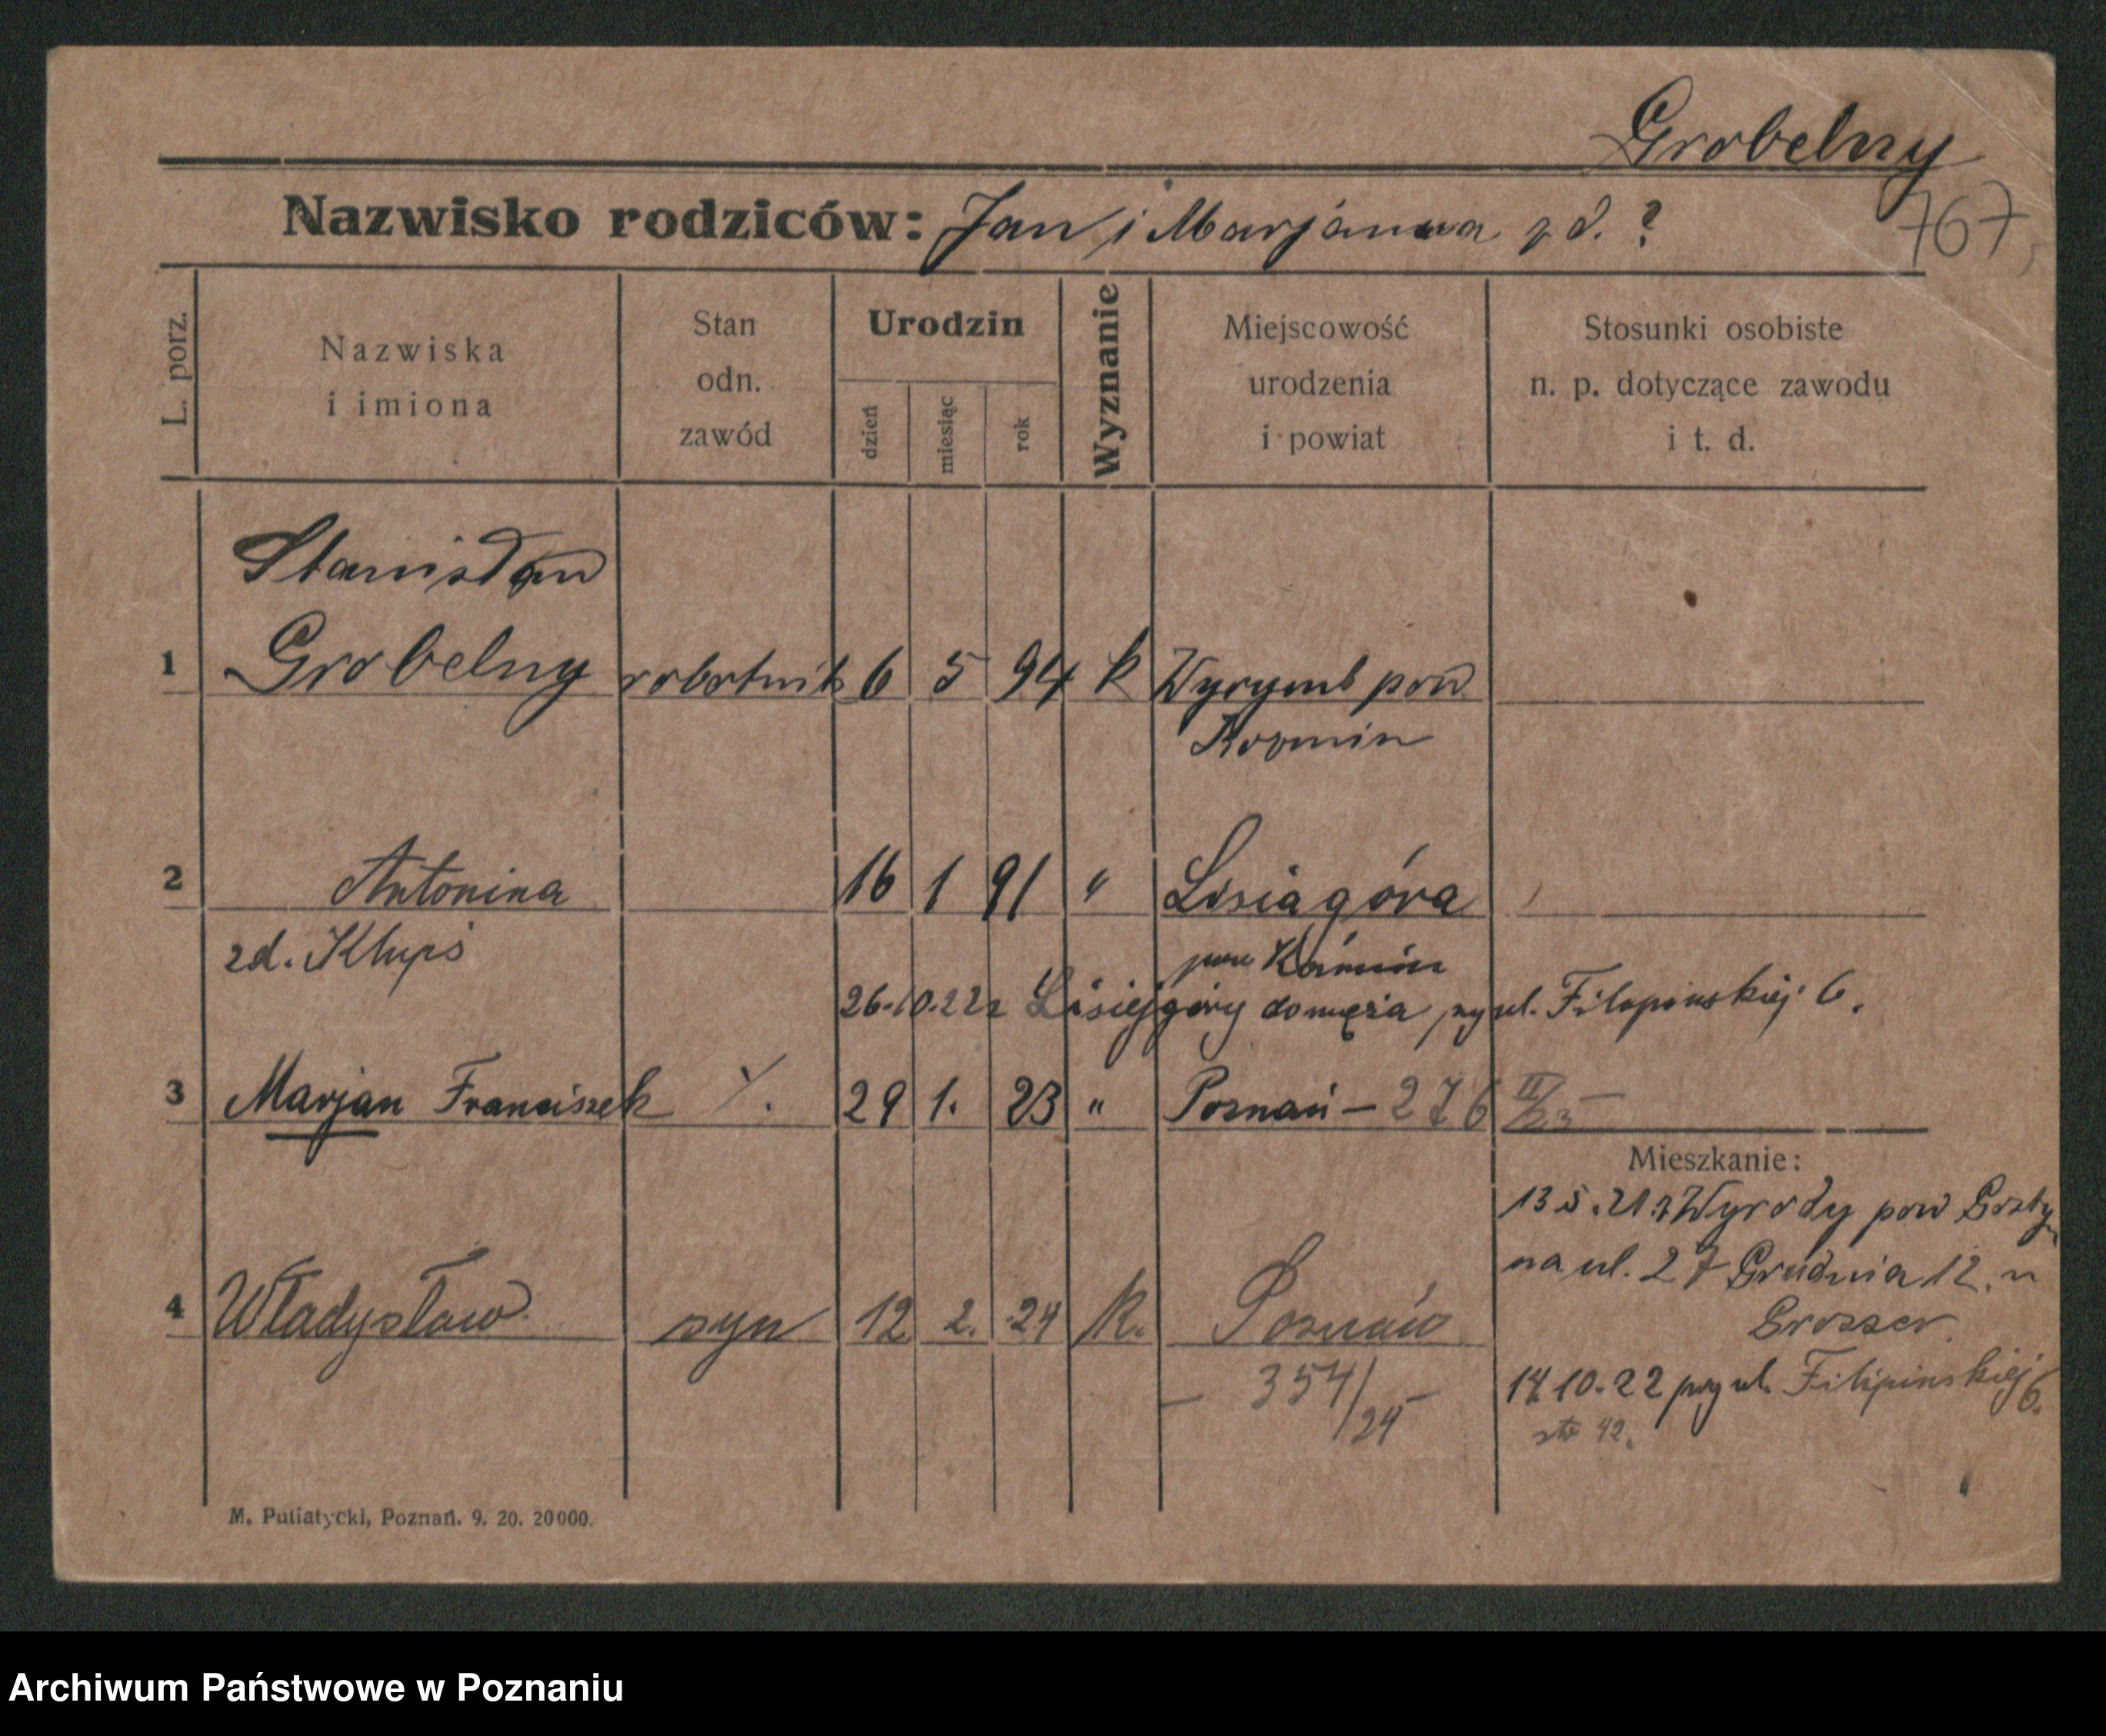 Grobelny
Nazwisko rodziców: Jan i Marjanna zd. ?
767
L. porz.
Nazwiska i imiona
Stan odn. zawód
Urodzin
dzień
miesiąc
rok
Wyznanie
Miejscowość urodzenia i powiat
Stosunki osobiste n. p. dotyczące zawodu i t. d.
Stanisław
1 Grobelny robotnik 6 5 94 k Wyrymb pow
Kozmin
2 Antonina 16 1 91 " Lisiagóra
zd. Klupś
26.10.22 z Lisiejgóry do męża przy ul. Filipińskiej 6.
3 Marjan Franciszek 29 1. 23 " Poznań - 276 II/23 -
Mieszkanie:
13 5. 21 z Wyrody pow Gosty
na ul. 27 Grudnia 12. u
Grosser.
4 Władysław syn 12 2. 24 k. Poznań
- 354/24 -
14 10. 22 przy ul. Filipińskiej 6.
str 42.
M. Putiatycki, Poznań. 9. 20. 20000.
Archiwum Państwowe w Poznaniu